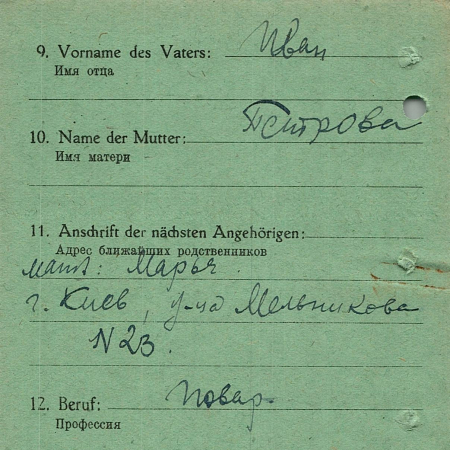 9. Vorname des Vaters: Иван
Имя отца
10. Name der Mutter: Петрова
Имя матери
11. Anschrift der nächsten Angehörigen:
Адрес ближайших родственников
мать: Марья
г. Киев, у-ца Мельникова
N 23.
12. Beruf: Повар.
Профессия